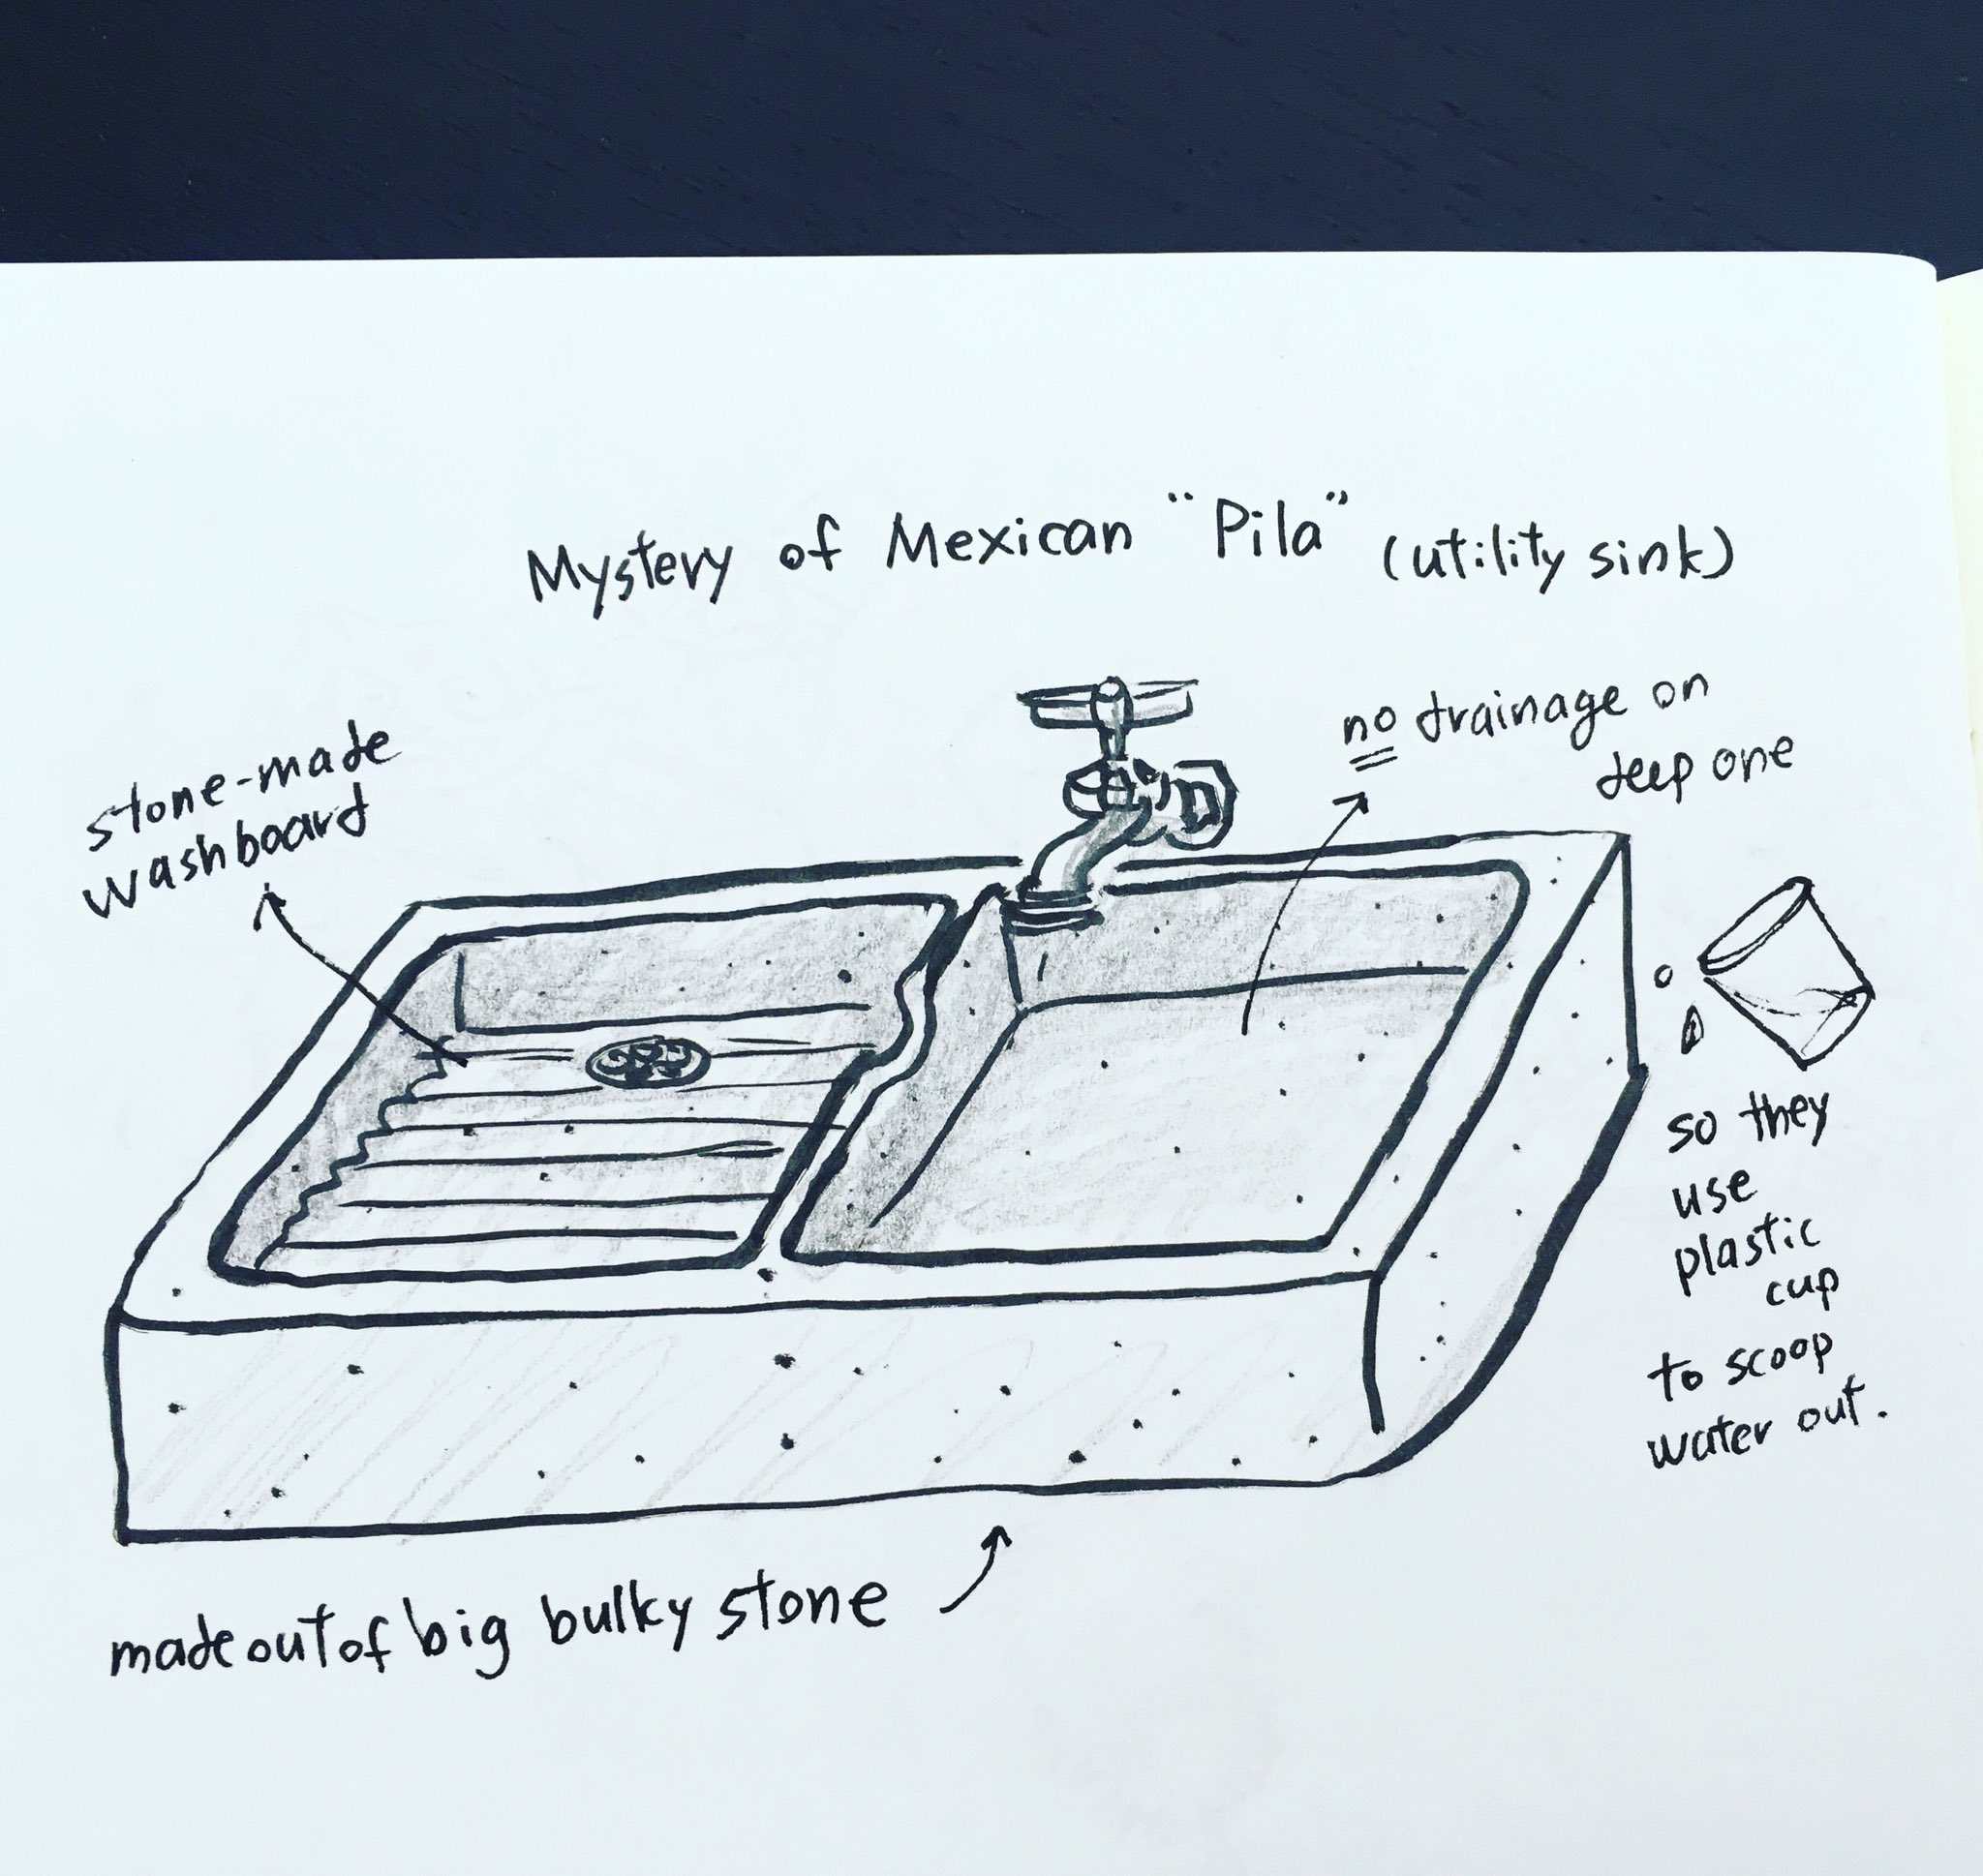 Mystery of Mexican "Pila" (utility sink)
stone-made
washboard
no drainage on
deep one
so they
use
plastic
cup
to scoop
water out.
made out of big bulky stone